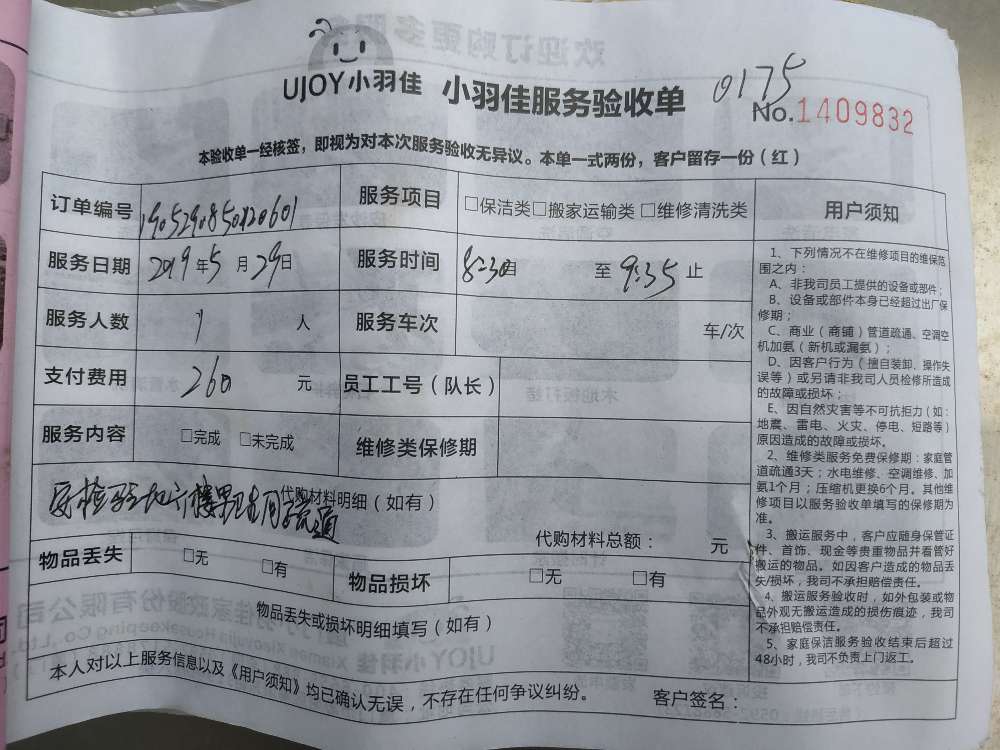 UJOY小羽佳 小羽佳服务验收单 0175
No.1409832
本验收单一经核签，即视为对本次服务验收无异议。本单一式两份，客户留存一份（红）
订单编号 1905290850120601 服务项目 □保洁类□搬家运输类 □维修清洗类
服务日期 2019年5月29日 服务时间 8:30自 至 9:35 止
服务人数 1 人 服务车次 车/次
支付费用 260 元 员工工号（队长）
服务内容 □完成 □未完成 维修类保修期
代购材料明细（如有）
代购材料总额： 元
物品丢失 □无 □有 物品损坏 □无 □有
物品丢失或损坏明细填写（如有）
本人对以上服务信息以及《用户须知》均已确认无误，不存在任何争议纠纷。 客户签名：
用户须知
1、下列情况不在维修项目的维保范
围之内：
A、非我司员工提供的设备或部件；
B、设备或部件本身已经超过出厂保
修期；
C、商业（商铺）管道疏通、空调空
机加氨（新机或漏氨）；
D、因客户行为（擅自装卸、操作失
误等）或另请非我司人员检修所造成
的故障或损坏；
E、因自然灾害等不可抗拒力（如：
地震、雷电、火灾、停电、短路等）
原因造成的故障或损坏。
2、维修类服务免费保修期：家庭管
道疏通3天；水电维修、空调维修、加
氨1个月；压缩机更换6个月。其他维
修项目以服务验收单填写的保修期为
准。
3、搬运服务中，客户应随身保管证
件、首饰、现金等贵重物品并看管好
搬运的物品。如因客户造成的物品丢
失/损坏，我司不承担赔偿责任。
4、搬运服务验收时，如外包装或物
品外观无搬运造成的损伤痕迹，我司
不承担赔偿责任。
5、家庭保洁服务验收结束后超过
48小时，我司不负责上门返工。